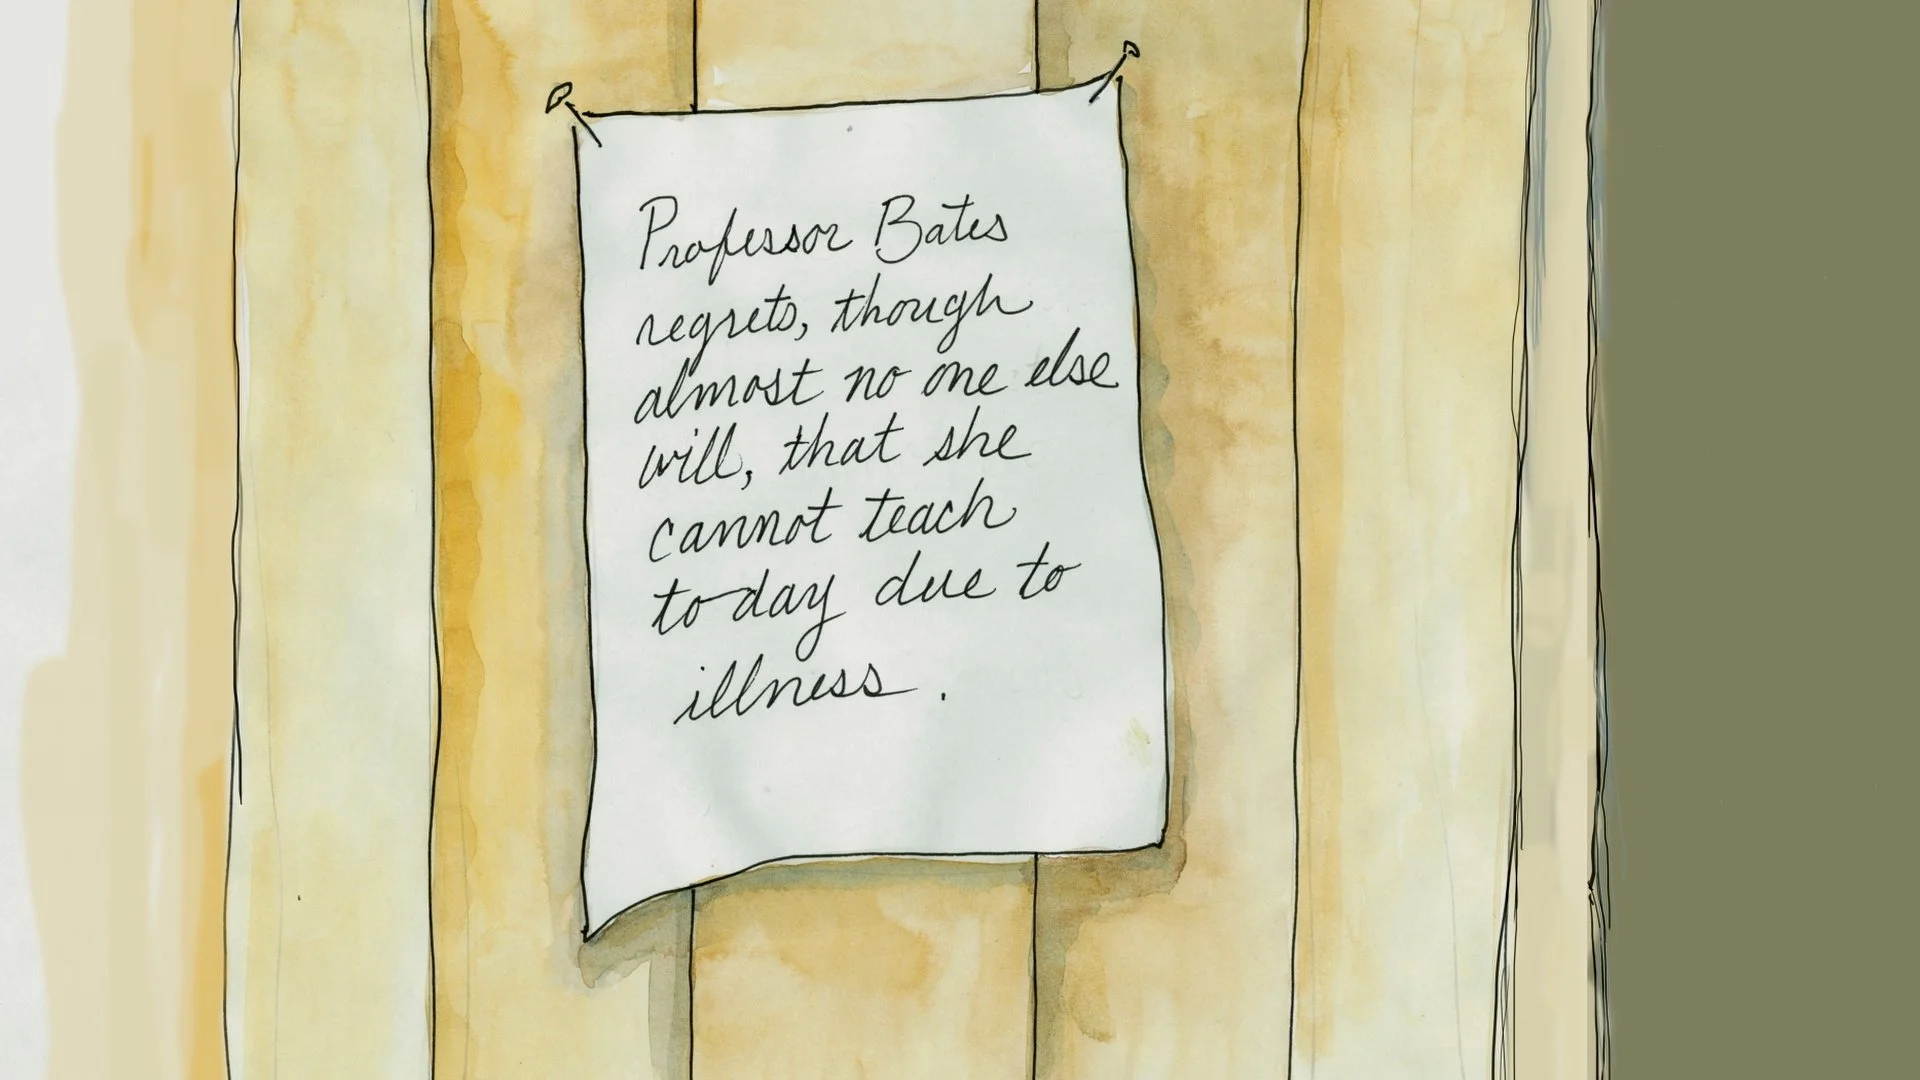 Professor Bates
regrets, though
almost no one else
will, that she
cannot teach
to-day due to
illness.